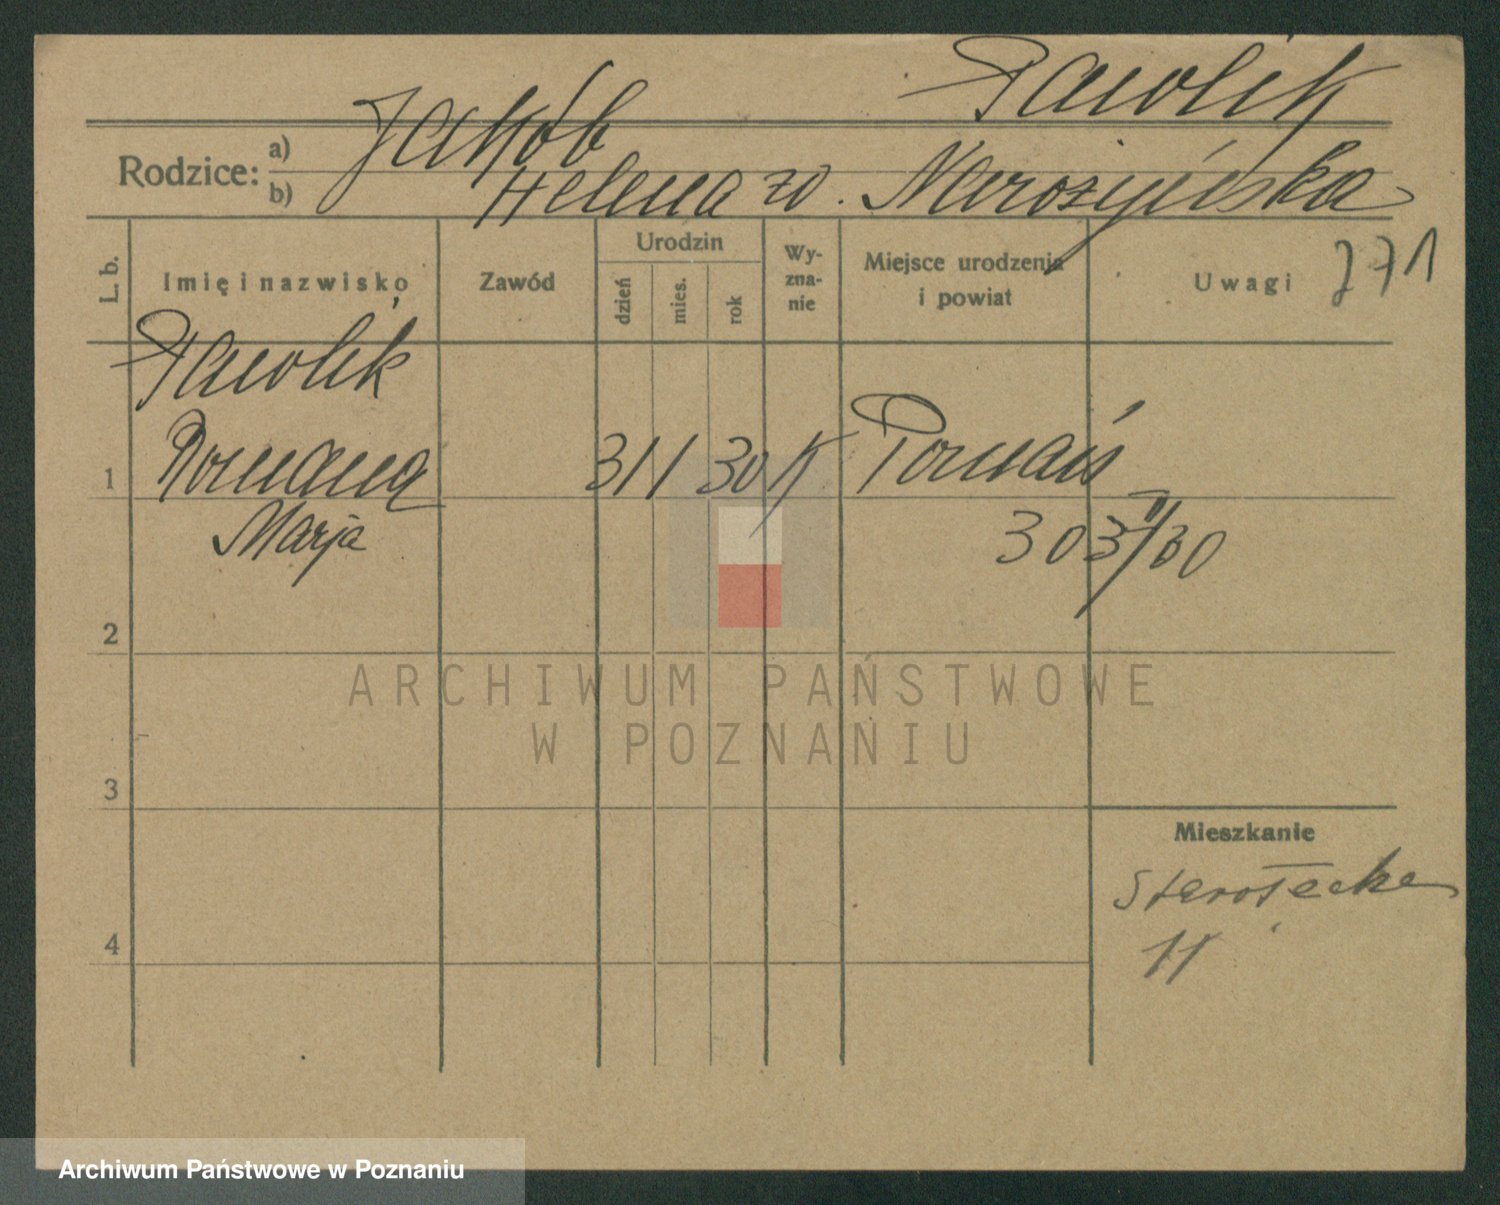 Pawolik
Rodzice: a) Jakób
b) Helena zd. Narożyńska
L. b.
Imię i nazwisko
Zawód
Urodzin
dzień
mies.
rok
Wy-
zna-
nie
Miejsce urodzenia
i powiat
Uwagi
771
Pawolik
1 Romana 31 1 30 K Poznań
Marja
303/II/30
2
3
4
Mieszkanie
Starołęcka
11
ARCHIWUM PAŃSTWOWE
W POZNANIU
Archiwum Państwowe w Poznaniu